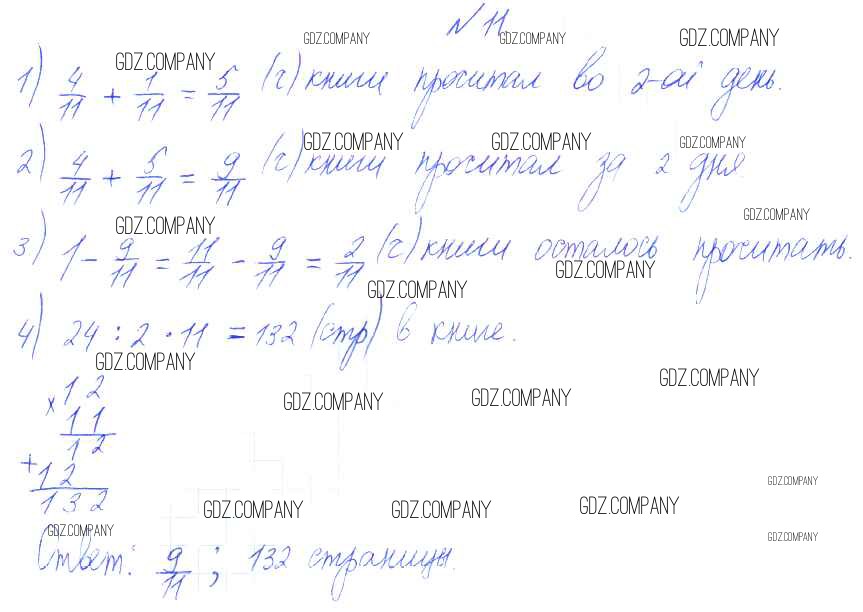 GDZ.COMPANY GDZ.COMPANY GDZ.COMPANY
№ 11
GDZ.COMPANY
1) 4/11 + 1/11 = 5/11 (ч) книги прочитал во 2-ой день.
GDZ.COMPANY GDZ.COMPANY GDZ.COMPANY
2) 4/11 + 5/11 = 9/11 (ч) книги прочитал за 2 дня
GDZ.COMPANY GDZ.COMPANY
3) 1 - 9/11 = 11/11 - 9/11 = 2/11 (ч) книги осталось прочитать.
GDZ.COMPANY GDZ.COMPANY
4) 24 : 2 · 11 = 132 (стр) в книге.
GDZ.COMPANY GDZ.COMPANY GDZ.COMPANY GDZ.COMPANY
× 12
11
12
+ 12
132
GDZ.COMPANY
GDZ.COMPANY GDZ.COMPANY GDZ.COMPANY
GDZ.COMPANY GDZ.COMPANY
Ответ: 9/11 ; 132 страницы.